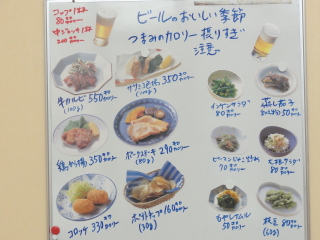 コップ1杯
80キロカロリー
中ジョッキ1杯
200キロカロリー
ビールのおいしい季節
つまみのカロリー摂りすぎ
注意
牛カルビ 550キロカロリー
(100g)
350キロカロリー
インゲンサラダ
80キロカロリー
蒸し茄子
鶏から揚 350キロカロリー
(100g)
ポークステーキ 290キロカロリー
(100g)
ピーマンじゃこ炒め
70キロカロリー
大根サラダ
80キロカロリー
コロッケ 330キロカロリー
ポテトチップ 160キロカロリー
(30g)
もやしナムル
50キロカロリー
枝豆 80キロカロリー
(60g)